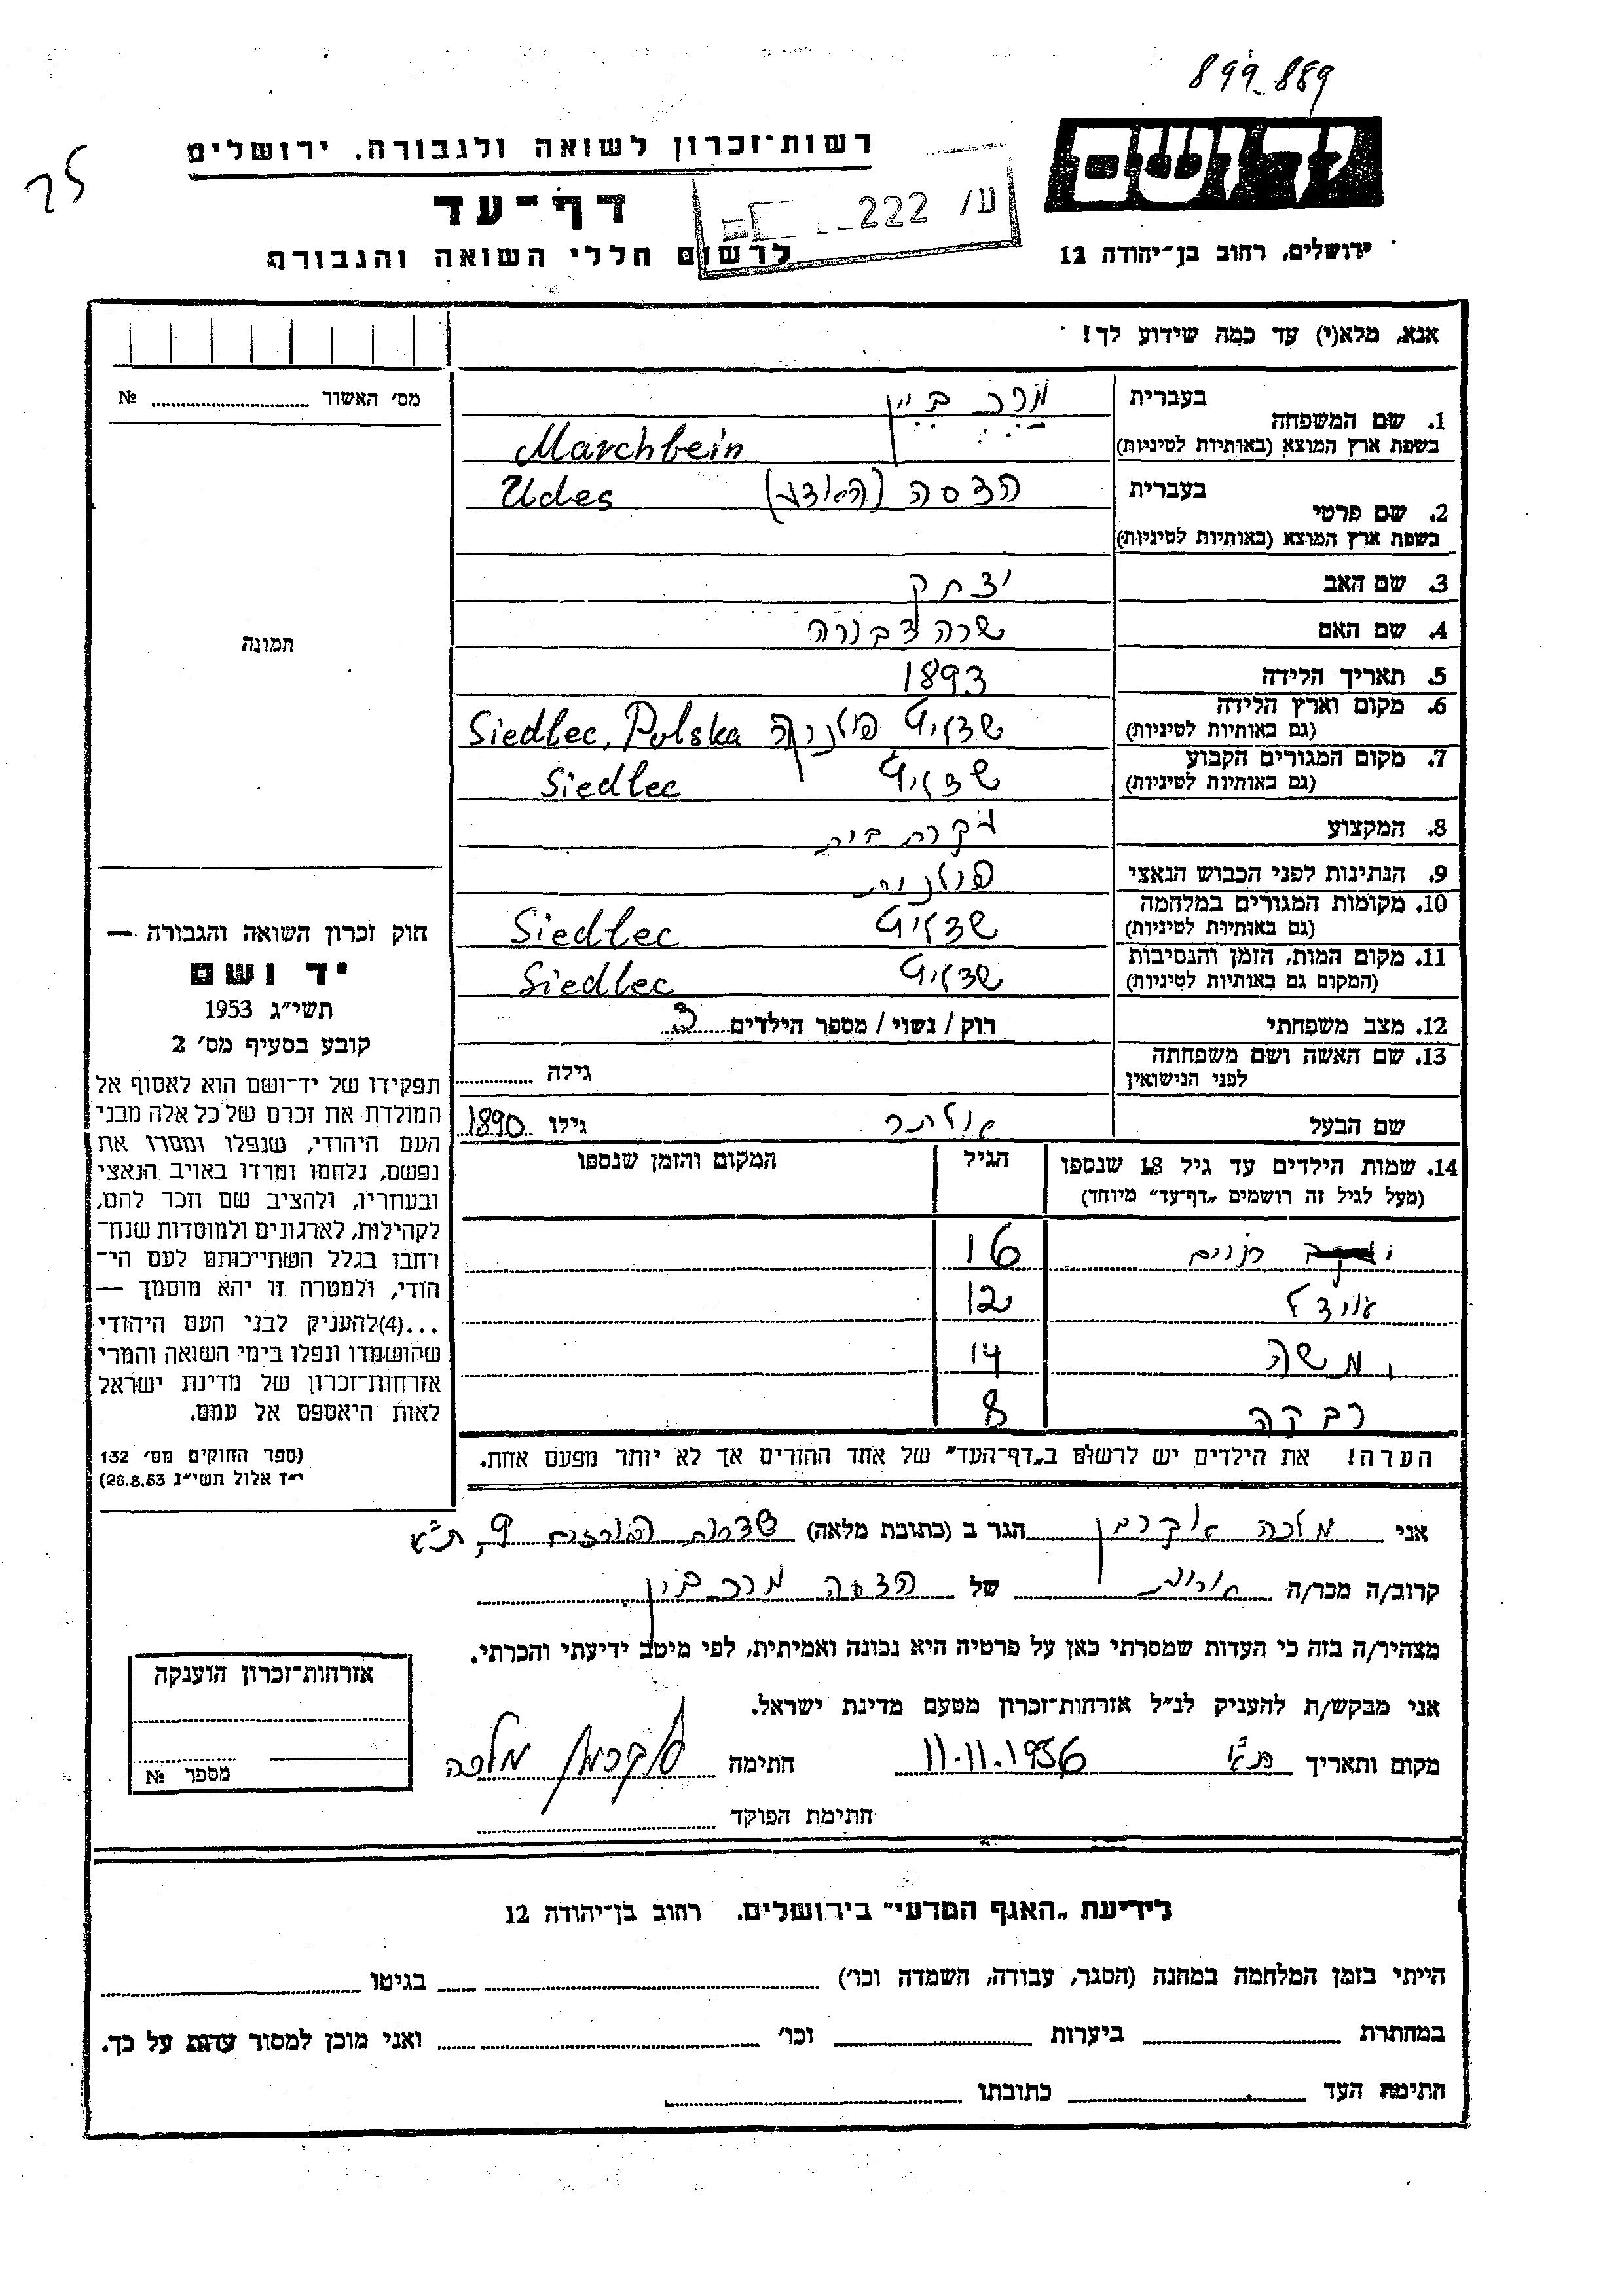 899-889
יד ושם
רשות־זכרון לשואה ולגבורה, ירושלים
דף־עד
ע/ 222
לרשום חללי השואה והגבורה
ירושלים, רחוב בן־יהודה 12
אנא, מלא(י) עד כמה שידוע לך!
מס׳ האשור № 
תמונה
1. שם המשפחה
בעברית מרכביין
בשפת ארץ המוצא (באותיות לטיניות) Marchbein
2. שם פרטי
בעברית הדסה Udes
בשפת ארץ המוצא (באותיות לטיניות)
3. שם האב יצחק
4. שם האם שרה דבורה
5. תאריך הלידה 1893
6. מקום וארץ הלידה
(גם באותיות לטיניות) Siedlec, Polska
7. מקום המגורים הקבוע
(גם באותיות לטיניות) Siedlec
8. המקצוע עקרת בית
9. הנתינות לפני הכבוש הנאצי פולנית
10. מקומות המגורים במלחמה
(גם באותיות לטיניות) Siedlec
11. מקום המות, הזמן והנסיבות
(המקום גם באותיות לטיניות) Siedlec
12. מצב משפחתי רוק / נשוי / מספר הילדים 3
13. שם האשה ושם משפחתה
לפני הנישואין גילה
שם הבעל אלתר גילו 1890
14. שמות הילדים עד גיל 18 שנספו הגיל המקום והזמן שנספו
(מעל לגיל זה רושמים „דף־עד״ מיוחד)
חיים 16
אידל 12
משה 14
רבקה 8
חוק זכרון השואה והגבורה —
יד ושם
תשי״ג 1953
קובע בסעיף מס׳ 2
תפקידו של יד־ושם הוא לאסוף אל
המולדת את זכרם של כל אלה מבני
העם היהודי, שנפלו ומסרו את
נפשם, נלחמו ומרדו באויב הנאצי
ובעוזריו, ולהציב שם וזכר להם,
לקהילות, לארגונים ולמוסדות שנח־
רחבו בגלל השתייכותם לעם הי־
הודי, ולמטרה זו יהא מוסמך —
...(4)להעניק לבני העם היהודי
שהושמדו ונפלו בימי השואה והמרי
אזרחות־זכרון של מדינת ישראל
לאות היאספם אל עמם.
(ספר החוקים מס׳ 132
י״ד אלול תשי״ג 28.8.53)
הערה! את הילדים יש לרשום ב„דף־העד״ של אחד ההורים אך לא יותר מפעם אחת.
אני מלכה הגר ב (כתובת מלאה) שדרות 9, ת״א
קרוב/ה מכר/ה אחות של הדסה מרכביין
מצהיר/ה בזה כי העדות שמסרתי כאן על פרטיה היא נכונה ואמיתית, לפי מיטב ידיעתי והכרתי.
אני מבקש/ת להעניק לנ״ל אזרחות־זכרון מטעם מדינת ישראל.
מקום ותאריך ת״א 11.11.1956 חתימה מלכה
חתימת הפוקד
אזרחות־זכרון הוענקה
מספר №
לידיעת „האגף המדעי״ בירושלים. רחוב בן־יהודה 12
הייתי בזמן המלחמה במחנה (הסגר, עבודה, השמדה וכו׳) בגיטו
במחתרת ביערות וכו׳ ואני מוכן למסור עדות על כך.
חתימת העד כתובתו